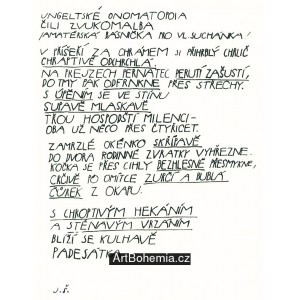 UNGELTSKÉ ONOMATOPOIA
ČILI ZVUKOMALBA
(AMATÉRSKÁ BÁSNIČKA PRO VL. SUCHÁNKA)
V PŘÍŠEŘÍ ZA CHRÁMEM SI PŘIHRBLÝ CHRLIČ
CHRAPTIVĚ ODCHRCHLÁ.
NA PREJZECH PERNATEC PERUTÍ ZAŠUSTÍ,
DO TMY PAK ODFRNKNE PŘES STŘECHY.
S ÚPĚNÍM SE VE STÍNU
SUPAVĚ MLASKAVĚ
TŘOU HOSPODŠTÍ MILENCI -
OBA UŽ NĚCO PŘES ČTYŘICET.
ZAMRZLÉ OKÉNKO SKŘÍPAVĚ
DO DVORA RODINNÉ ZVRATKY VYHŘEZNE.
KOČKA SE PŘES CIHLY BEZHLESNĚ PŘESMYKNE,
CRČIVĚ PO OMÍTCE ZURČÍ A BUBLÁ
ČŮREK Z OKAPU.
S CHROPTIVÝM HEKÁNÍM
A STÉNAVÝM VRZÁNÍM
BLÍŽÍ SE KULHAVĚ
PADESÁTKA.
J.Š.
ArtBohemia.cz